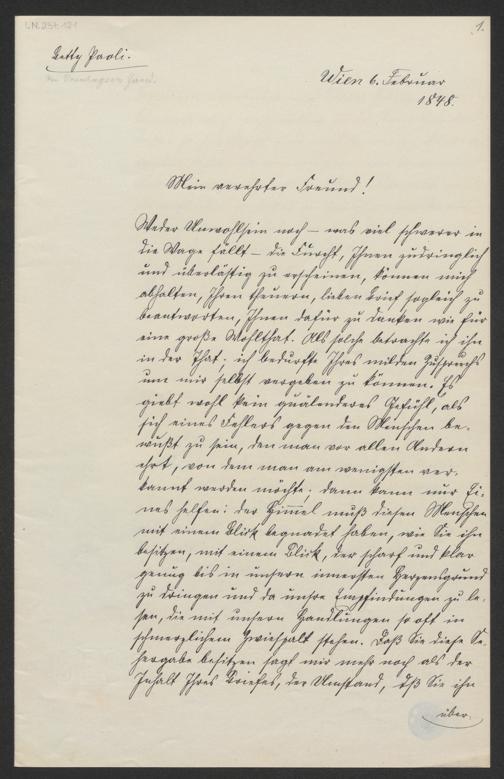 I.N. 231.121
1.
Betty Paoli.
Wien 6. Februar
1848.
Mein verehrter Freund!
Weder Unwohlsein noch – was viel schwerer in
die Wage fällt – die Furcht, Ihnen zudringlich
und überlästig zu erscheinen, können mich
abhalten, Ihren theuern, lieben Brief sogleich zu
beantworten, Ihnen dafür zu danken wie für
eine große Wohlthat. Als solche betrachte ich ihn
in der That; ich bedurfte Ihres milden Zuspruchs
um mir selbst vergeben zu können. Es
giebt wohl kein quälenderes Gefühl, als
sich eines Fehlers gegen den Menschen be-
wußt zu sein, den man vor allen Andern
ehrt, von dem man am wenigsten ver-
kannt werden möchte; dann kann nur Ei-
nes helfen: der Himmel muß diesen Menschen
mit einem Blick begnadet haben, wie Sie ihn
besitzen, mit einem Blick, der scharf und klar
genug bis in unsern innersten Herzensgrund
zu dringen und da unsre Empfindungen zu le-
sen, die mit unsern Handlungen so oft in
schmerzlichem Zwiespalt stehen. Daß Sie diese Se-
hergabe besitzen sagt mir mehr noch als der
Inhalt Ihres Briefes, der Umstand, daß Sie ihn
über.